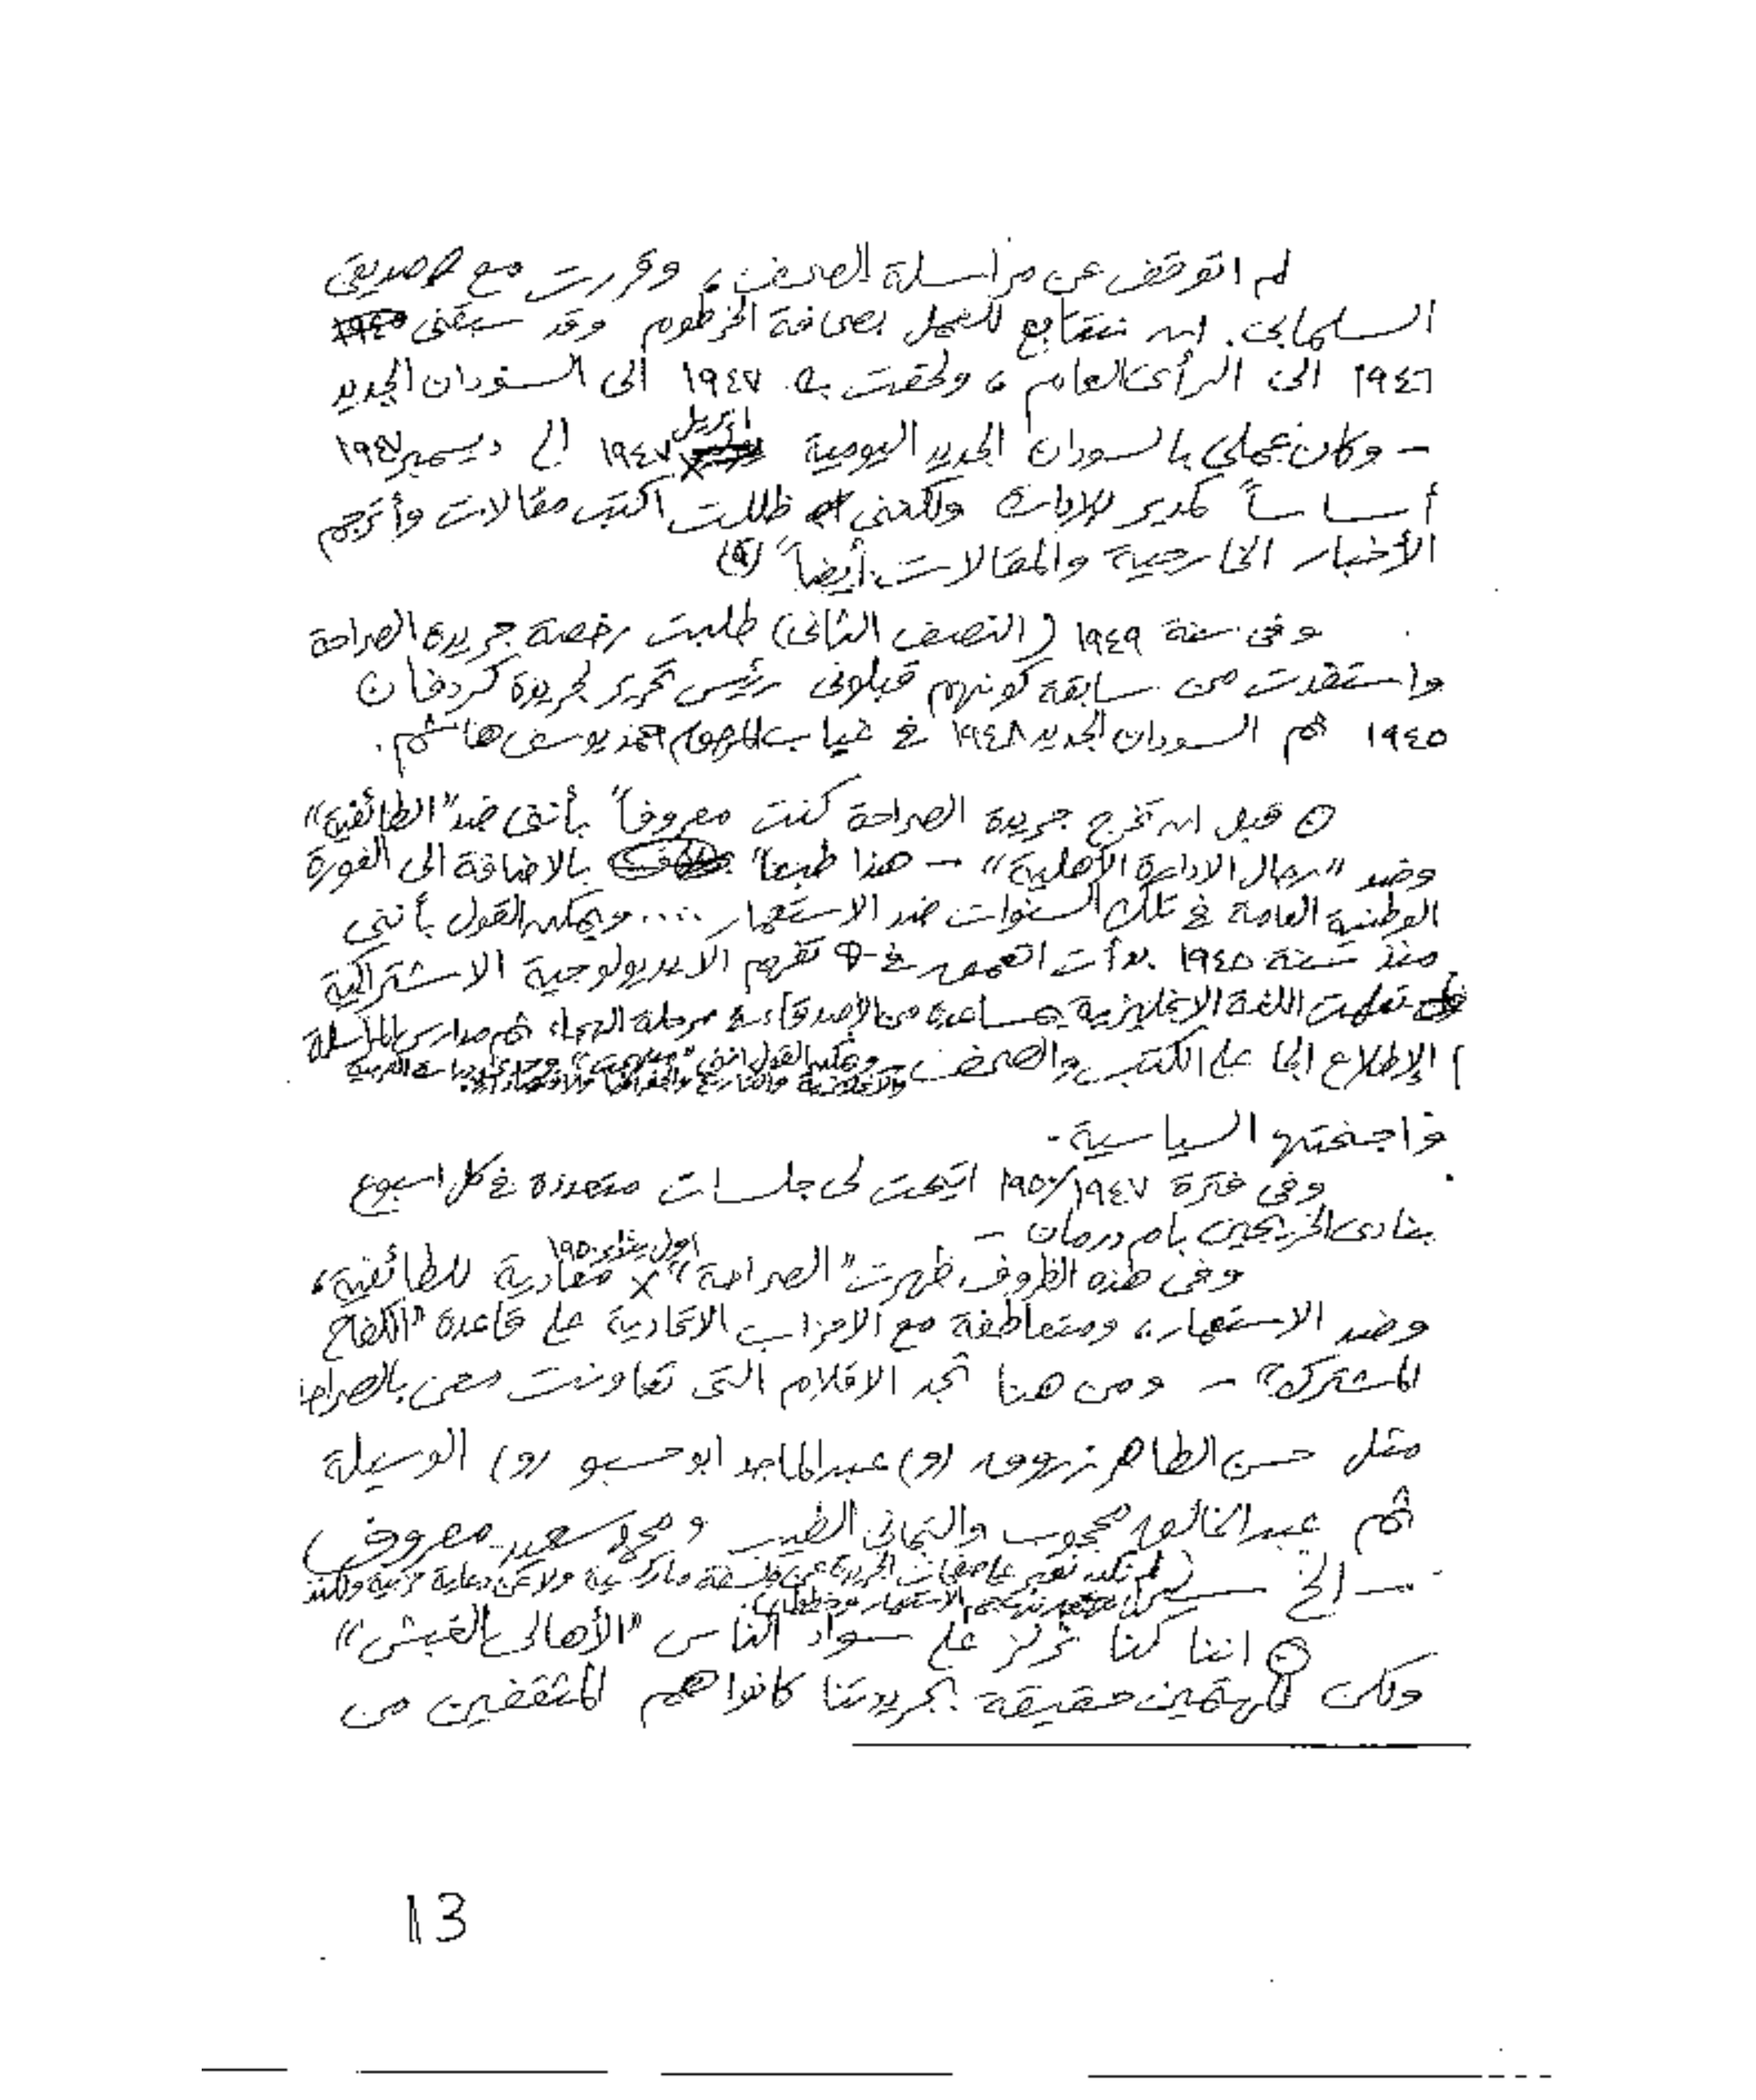 لم اتوقف عن مراسلة الصحف، وقررت مع صديقى
السلمابى. ان نتتابع للعمل بصحافة الخرطوم وقد سبقنى
١٩٤٦ الى الرأى العام، ولحقت به ١٩٤٧ الى السودان الجديد
– وكان عملي بالسودان الجديد اليومية ابريل ١٩٤٧ الى ديسمبر ١٩٤٧
أساساً كمدير للإدارة ولكننى ظللت اكتب مقالات وأترجم
الأخبار الخارجية والمقالات أيضاً"
وفى سنة ١٩٤٩ (النصف الثانى) طلبت رخصة جريدة الصراحة
واستفدت من سابقة كونهم قبلونى رئيس تحرير لجريدة كردفان
١٩٤٥ ثم السودان الجديد ١٩٤٨ في غياب المرحوم احمد يوسف هاشم.
قبل ان تخرج جريدة الصراحة كنت معروفاً بأننى ضد "الطائفية"
وضد "رجال الادارة الأهلية" – هذا طبعاً بالاضافة الى الفورة
الوطنية العامة في تلك السنوات ضد الاستعمار .... ويمكن القول بأننى
منذ سنة ١٩٤٥ بدأت اتعمق في تفهم الايديولوجية الاشتراكية
تعلمت اللغة الإنجليزية بمساعدة من الأصدقاء في مرحلة ثم مدارس المراسلة
الإطلاع على الكتب والصحف – ويمكن القول اننى
والانجليزية والتاريخ والجغرافيا والاقتصاد
واجنحتها السياسية.
وفى فترة ١٩٤٧/ اتيحت لى جلسات متعددة في كل اسبوع
بنادى الخريجين بام درمان –
وفى هذه الظروف ظهرت "الصراحة" اول يناير ١٩٥٠ معادية للطائفية،
وضد الاستعمار، ومتعاطفة مع الاحزاب الاتحادية على قاعدة "الكفاح
المشترك" – ومن هنا تجد الاقلام التى تعاونت معى بالصراحة
مثل حسن الطاهر زروق (و) عبدالماجد ابو حسبو (و) الوسيلة
ثم عبد الخالق محجوب والتجانى الطيب و محمد سعيد معروف
– الخ – (لم تكن تعبر على صفحات الجريدة عن فلسفة ماركسية ولا عن دعاية حزبية ولكنه
الاستعمار وخططه).
اننا كنا نركز على سواد الناس "الأهالى الغبش"
ولكن المهتمين حقيقة بجريدتنا كانوا هم المثقفين من
13